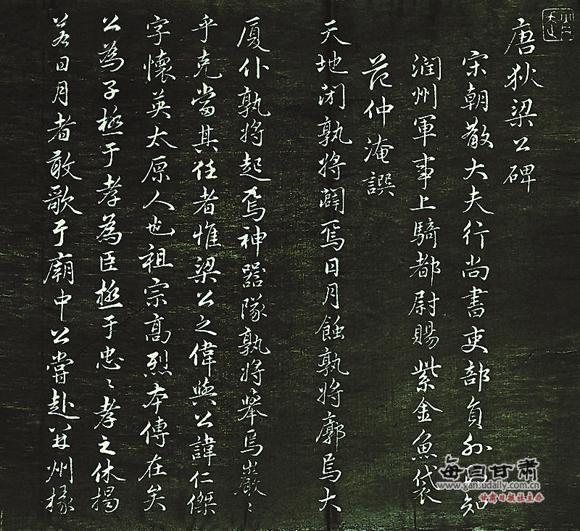 唐狄梁公碑
宋朝散大夫行尚書吏部員外郎知
潤州軍事上騎都尉賜紫金魚袋
范仲淹譔
天地閉孰將闢焉日月蝕孰將廓焉大
厦仆孰將起焉神器隊孰將舉焉巖〻
乎克當其任者惟梁公之偉與公諱仁傑
字懷英太原人也祖宗高烈本傳在矣
公為子極于孝為臣極于忠〻孝之休揭
若日月者敢歌于廟中公嘗赴并州掾
每日甘肃
www.gansudaily.com.cn
甘肃日报社主办